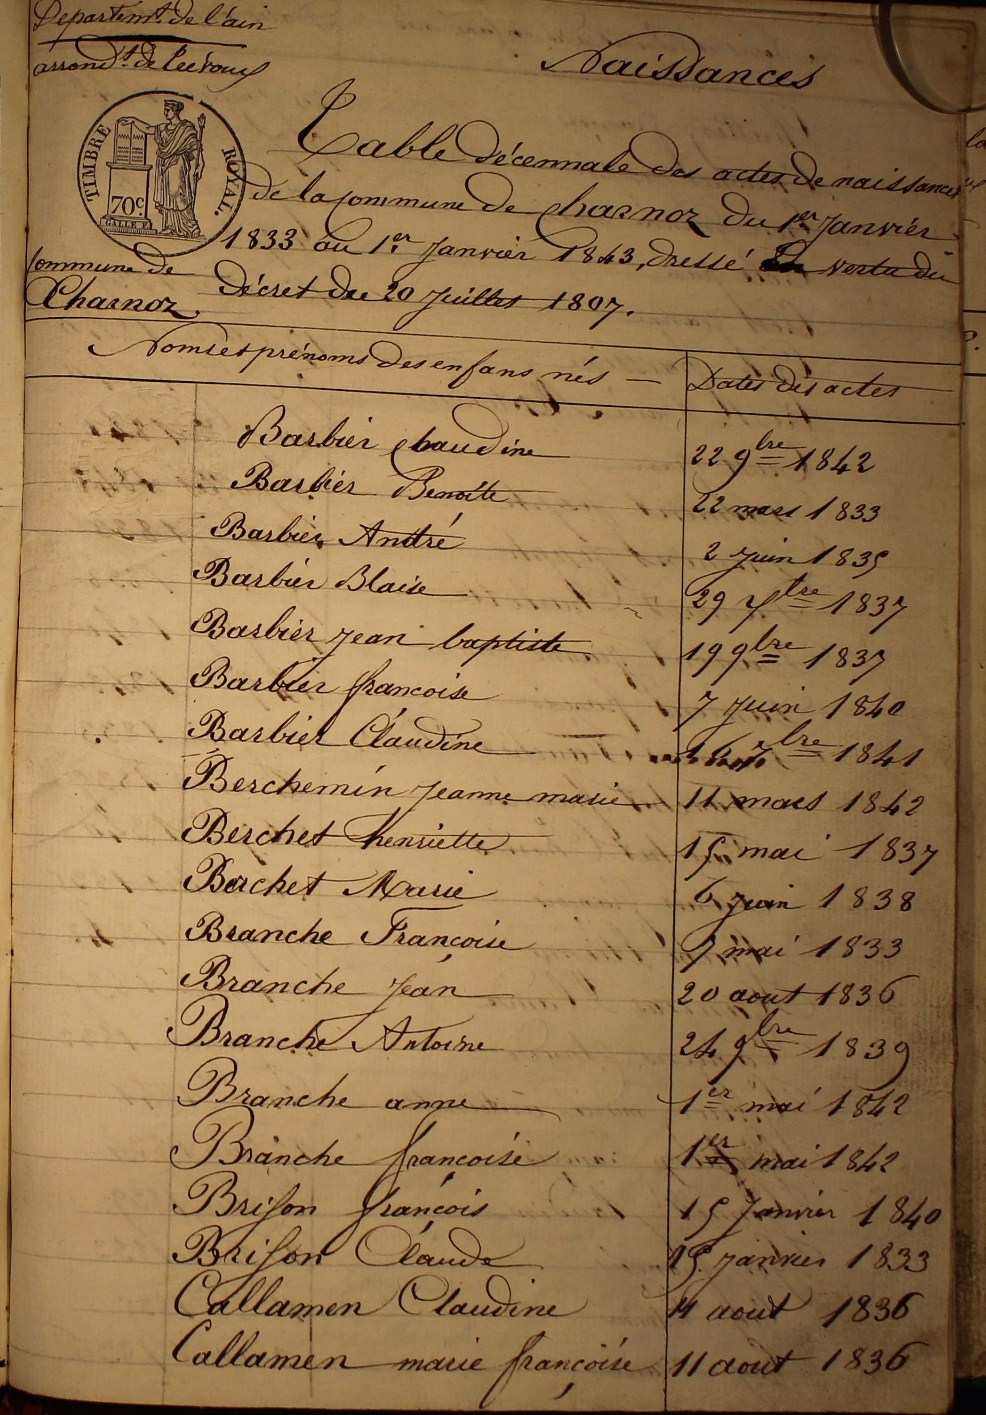 Departemt. de l'ain
arrondt. de Trevoux
Naissances
TIMBRE ROYAL.
70c
Table décennale des actes de naissances
de la commune de Charnoz du 1er Janvier
1833 au 1er Janvier 1843, dressé En vertu du
Commune de
Charnoz
Décret du 20 Juillet 1807.
Noms et prénoms des enfans nés — Dates des actes
Barbier Claudine 22 9bre 1842
Barbier Benoite 22 mars 1833
Barbier André 2 Juin 1835
Barbier Blaise 29 7bre 1837
Barbier Jean baptiste 19 9bre 1837
Barbier françoise 7 Juin 1840
Barbier Claudine bre 1841
Berchemin Jeanne marie 11 mars 1842
Berchet henriette 15 mai 1837
Berchet Marie 6 Juin 1838
Branche Françoise 9 mai 1833
Branche Jean 20 aout 1836
Branche Antoine 24 9bre 1839
Branche anne 1er mai 1842
Branche françoise 1er mai 1842
Brison françois 15 Janvier 1840
Brison Claude 15 janvier 1833
Callamen Claudine 11 aout 1836
Callamen marie françoise 11 aout 1836